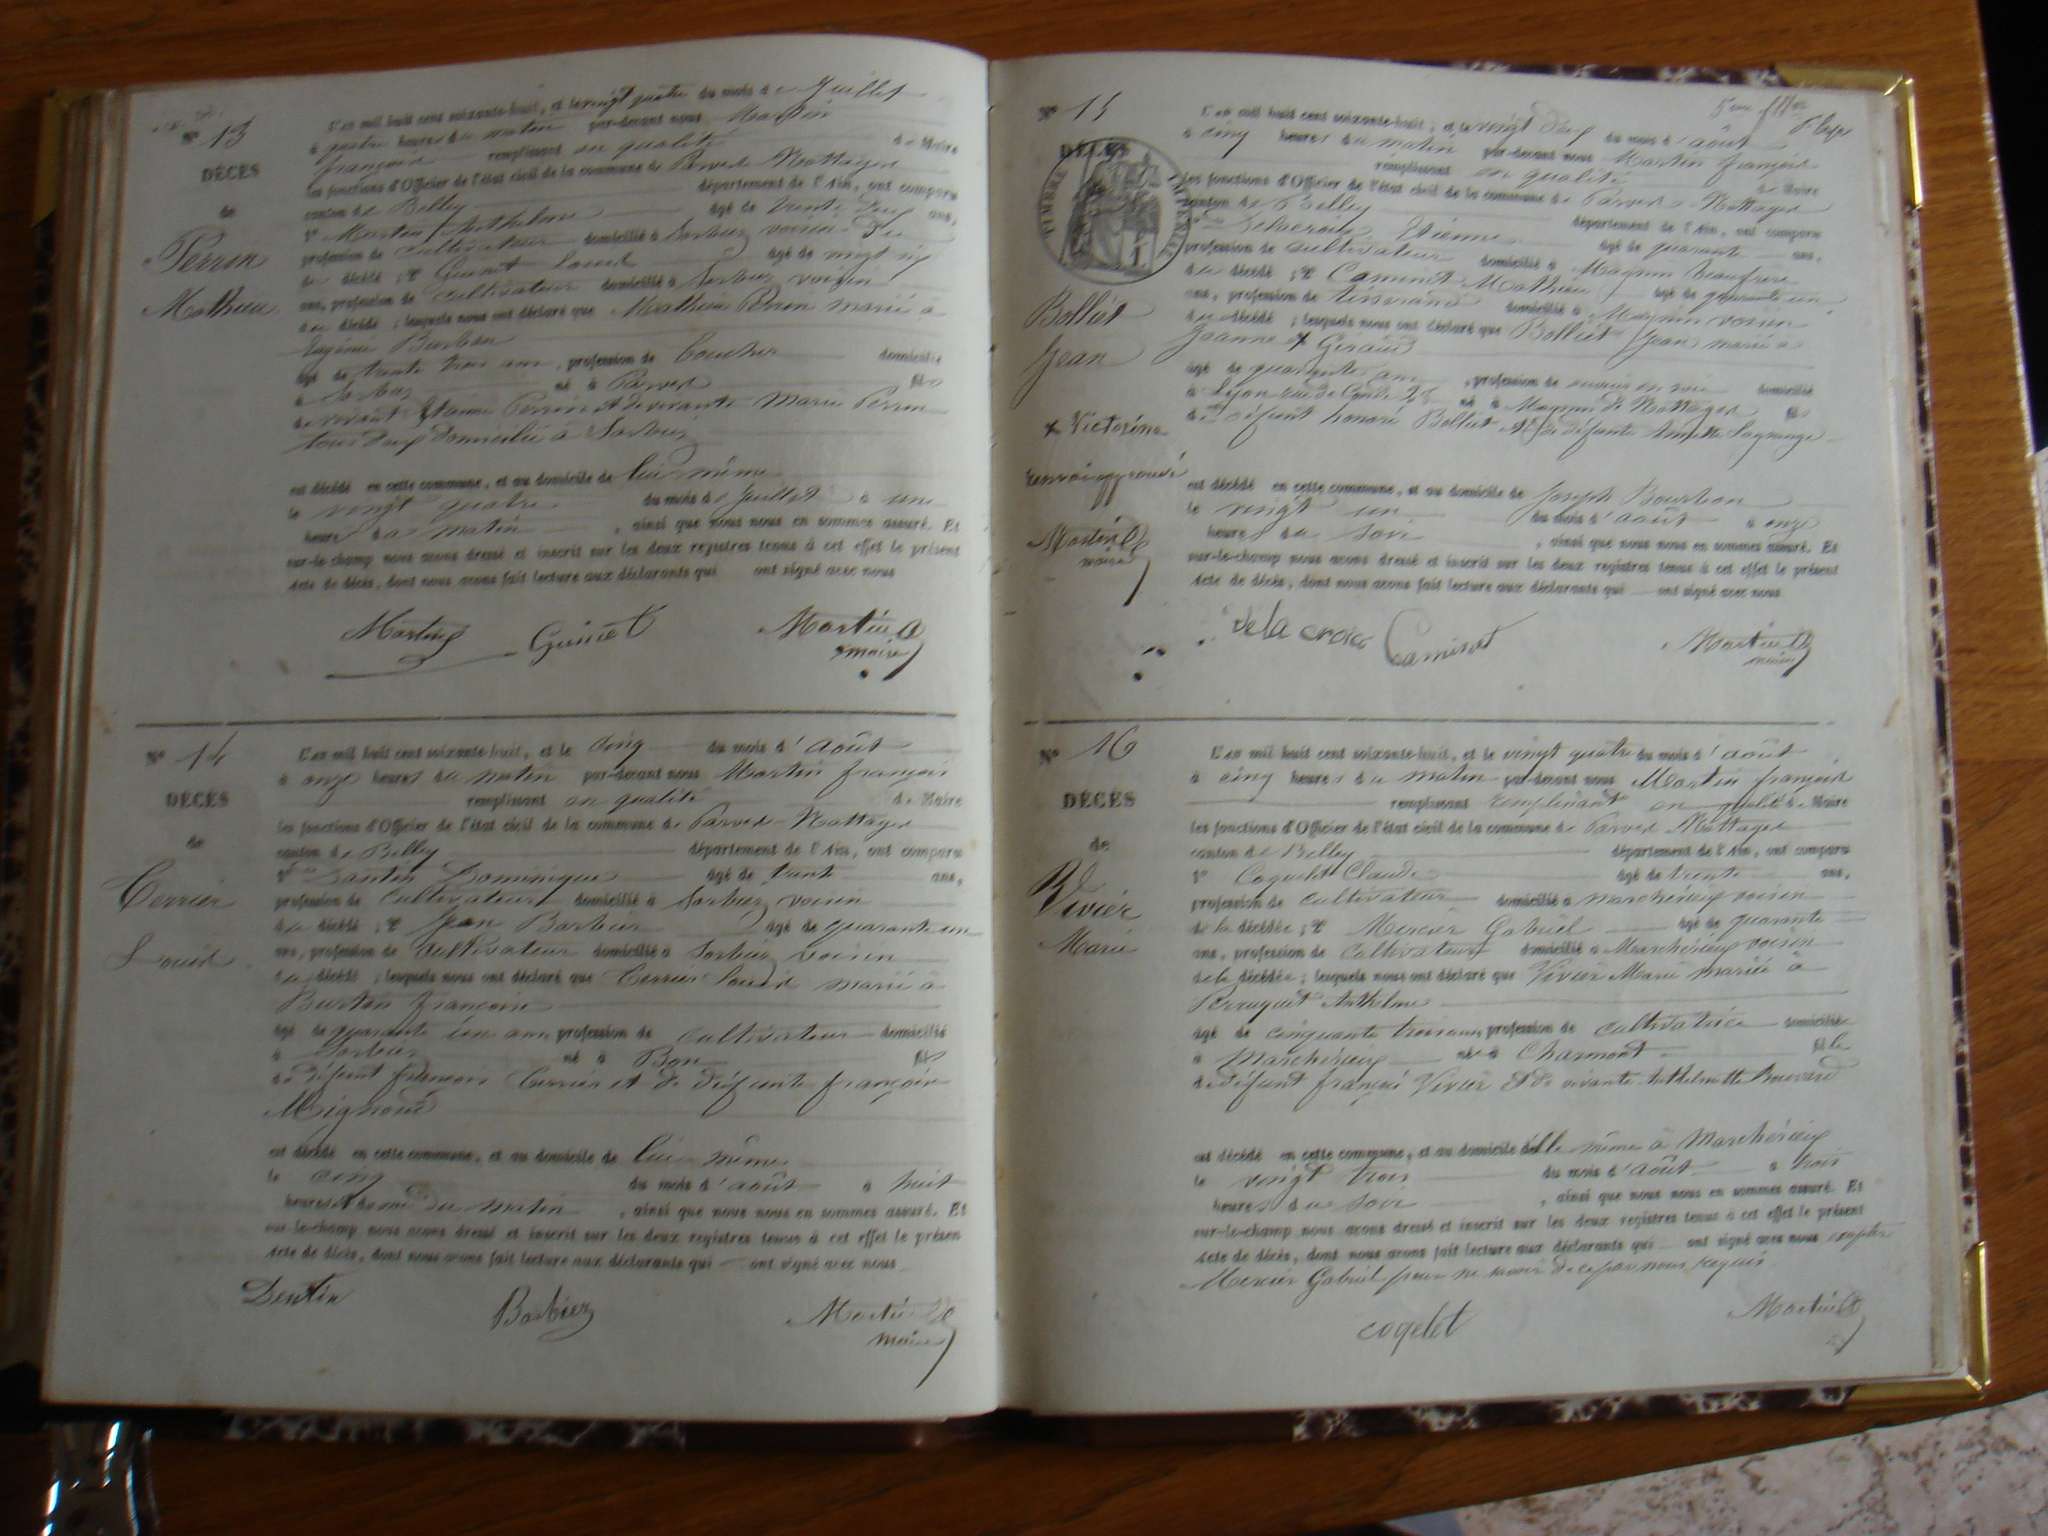 N° 13
DÉCÈS
de
Perrin
Mathieu
L'an mil huit cent soixante-huit, et le vingt quatre du mois de Juillet
à quatre heures du matin par-devant nous Martin
françois remplissant en qualité de Maire
les fonctions d'Officier de l'état civil de la commune de Parves Nattages
canton de Belley département de l'Ain, ont comparu
1° Martin Anthelme âgé de trente deux ans,
profession de cultivateur domicilié à Sorbier voisin du
du décédé ; 2° Guinet Louis âgé de vingt six
ans, profession de cultivateur domicilié à Sorbier voisin
du décédé ; lesquels nous ont déclaré que Mathieu Perrin marié à
Eugénie Barbier
âgé de trente trois ans, profession de boucher domicilié
à Sorbier né à Parves fils
de vivant Etienne Perrin et de vivante Marie Perrin
tous deux domiciliés à Sorbier
est décédé en cette commune, et au domicile de lui même
le vingt quatre du mois de Juillet à une
heure du matin , ainsi que nous nous en sommes assuré. Et
sur-le-champ nous avons dressé et inscrit sur les deux registres tenus à cet effet le présent
acte de décès, dont nous avons fait lecture aux déclarants qui ont signé avec nous
Martin Guinet Martin
maire
N° 14
DÉCÈS
de
Cerrier
Louis
L'an mil huit cent soixante-huit, et le cinq du mois d'août
à onze heures du matin par-devant nous Martin françois
remplissant en qualité de Maire
les fonctions d'Officier de l'état civil de la commune de Parves Nattages
canton de Belley département de l'Ain, ont comparu
1° Dantin Dominique âgé de trente ans,
profession de cultivateur domicilié à Sorbier voisin
du décédé ; 2° Jean Barbier âgé de quarante un
ans, profession de cultivateur domicilié à Sorbier voisin
du décédé ; lesquels nous ont déclaré que Cerrier Louis marié à
Burtin françoise
âgé de quarante un ans profession de cultivateur domicilié
à Sorbier né à Bon fils
de défunt françois Cerrier et de défunte françoise
Mignond
est décédé en cette commune, et au domicile de lui même
le cinq du mois d'août à huit
heures et demie du matin , ainsi que nous nous en sommes assuré. Et
sur-le-champ nous avons dressé et inscrit sur les deux registres tenus à cet effet le présen
acte de décès, dont nous avons fait lecture aux déclarants qui ont signé avec nous
Dentin Barbier Martin
maire
N° 15
DÉCÈS
TIMBRE IMPÉRIAL
Bolliet
Jean
x Victorine
renvoi approuvé
Martin
maire
L'an mil huit cent soixante-huit, et le vingt deux du mois d'août
à cinq heures du matin par-devant nous Martin françois
remplissant en qualité de Maire
les fonctions d'Officier de l'état civil de la commune de Parves Nattages
canton de Belley département de l'Ain, ont comparu
Etienne âgé de quarante ans,
profession de cultivateur domicilié à Magnin beaufrère
du décédé ; 2° Caminet Mathieu âgé de quarante un
ans, profession de tisserand domicilié à Magnin voisin
du décédé ; lesquels nous ont déclaré que Bolliet Jean marié à
Jeanne x Geraud
âgé de quarante ans , profession de ouvrier en soie domicilié
à Lyon rue de Condé 28 né à Magnin de Nattages fils
de défunt honoré Bolliet et de défunte Annette Lagrange
est décédé en cette commune, et au domicile de Joseph Bourbon
le vingt un du mois d'août à onze
heures du soir , ainsi que nous nous en sommes assuré. Et
sur-le-champ nous avons dressé et inscrit sur les deux registres tenus à cet effet le présent
acte de décès, dont nous avons fait lecture aux déclarants qui ont signé avec nous
de la croix Caminet Martin
maire
N° 16
DÉCÈS
de
Vivier
Marie
L'an mil huit cent soixante-huit, et le vingt quatre du mois d'août
à cinq heures du matin par-devant nous Martin françois
remplissant remplissant en qualité de Maire
les fonctions d'Officier de l'état civil de la commune de Parves Nattages
canton de Belley département de l'Ain, ont comparu
1° Coquelet Claude âgé de trente ans,
profession de cultivateur domicilié à Marchérieux voisin
de la décédée ; 2° Mercier Gabriel âgé de quarante
ans, profession de cultivateur domicilié à Marchérieux voisin
de la décédée ; lesquels nous ont déclaré que Vivier Marie mariée à
Perruquet Anthelme
âgé de cinquante trois ans, profession de cultivatrice domiciliée
à Marchérieux née à Charmont fille
de défunt françois Vivier et de vivante Anthelmette Bouvard
est décédé en cette commune, et au domicile d'elle même à Marchérieux
le vingt trois du mois d'août à trois
heures du soir , ainsi que nous nous en sommes assuré. Et
sur-le-champ nous avons dressé et inscrit sur les deux registres tenus à cet effet le présent
acte de décès, dont nous avons fait lecture aux déclarants qui ont signé avec nous excepté
Mercier Gabriel pour ne savoir de ce par nous requis
coqelet Martin